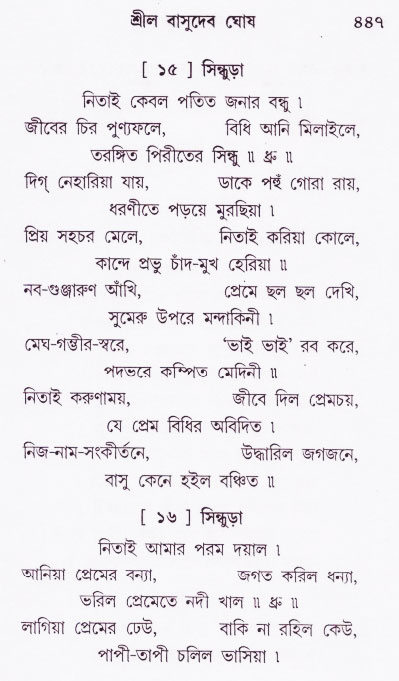 শ্রীল বাসুদেব ঘোষ ৪৪৭
[ ১৫ ] সিন্ধুড়া
নিতাই কেবল পতিত জনার বন্ধু ।
জীবের চির পুণ্যফলে, বিধি আনি মিলাইলে,
তরঙ্গিত পিরীতের সিন্ধু ॥ ধ্রু ॥
দিগ্ নেহারিয়া যায়, ডাকে পহুঁ গোরা রায়,
ধরণীতে পড়য়ে মুরছিয়া ।
প্রিয় সহচর মেলে, নিতাই করিয়া কোলে,
কান্দে প্রভু চাঁদ-মুখ হেরিয়া ॥
নব-গুঞ্জারুণ আঁখি, প্রেমে ছল ছল দেখি,
সুমেরু উপরে মন্দাকিনী ।
মেঘ-গম্ভীর-স্বরে, ‘ভাই ভাই’ রব করে,
পদভরে কম্পিত মেদিনী ॥
নিতাই করুণাময়, জীবে দিল প্রেমচয়,
যে প্রেম বিধির অবিদিত ।
নিজ-নাম-সংকীর্তনে, উদ্ধারিল জগজনে,
বাসু কেনে হইল বঞ্চিত ॥
[ ১৬ ] সিন্ধুড়া
নিতাই আমার পরম দয়াল ।
আনিয়া প্রেমের বন্যা, জগত করিল ধন্যা,
ভরিল প্রেমেতে নদী খাল ॥ ধ্রু ॥
লাগিয়া প্রেমের ঢেউ, বাকি না রহিল কেউ,
পাপী-তাপী চলিল ভাসিয়া ।